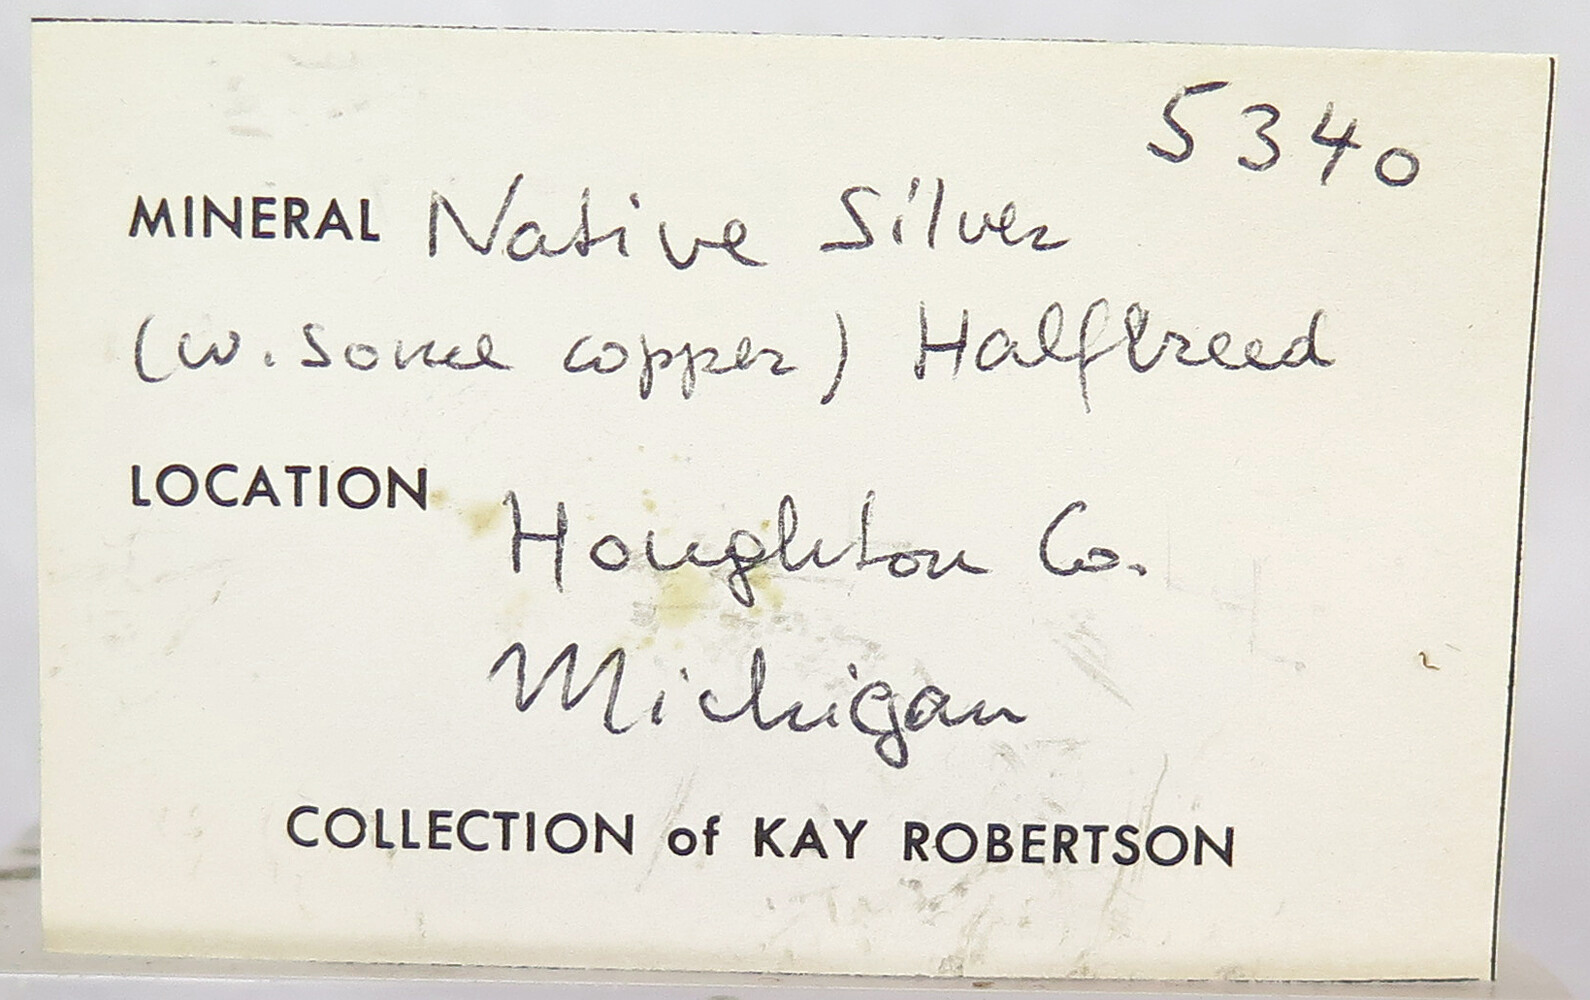 5340
MINERAL Native Silver
(w. some copper) Halfbreed
LOCATION
Houghton Co.
Michigan
COLLECTION of KAY ROBERTSON